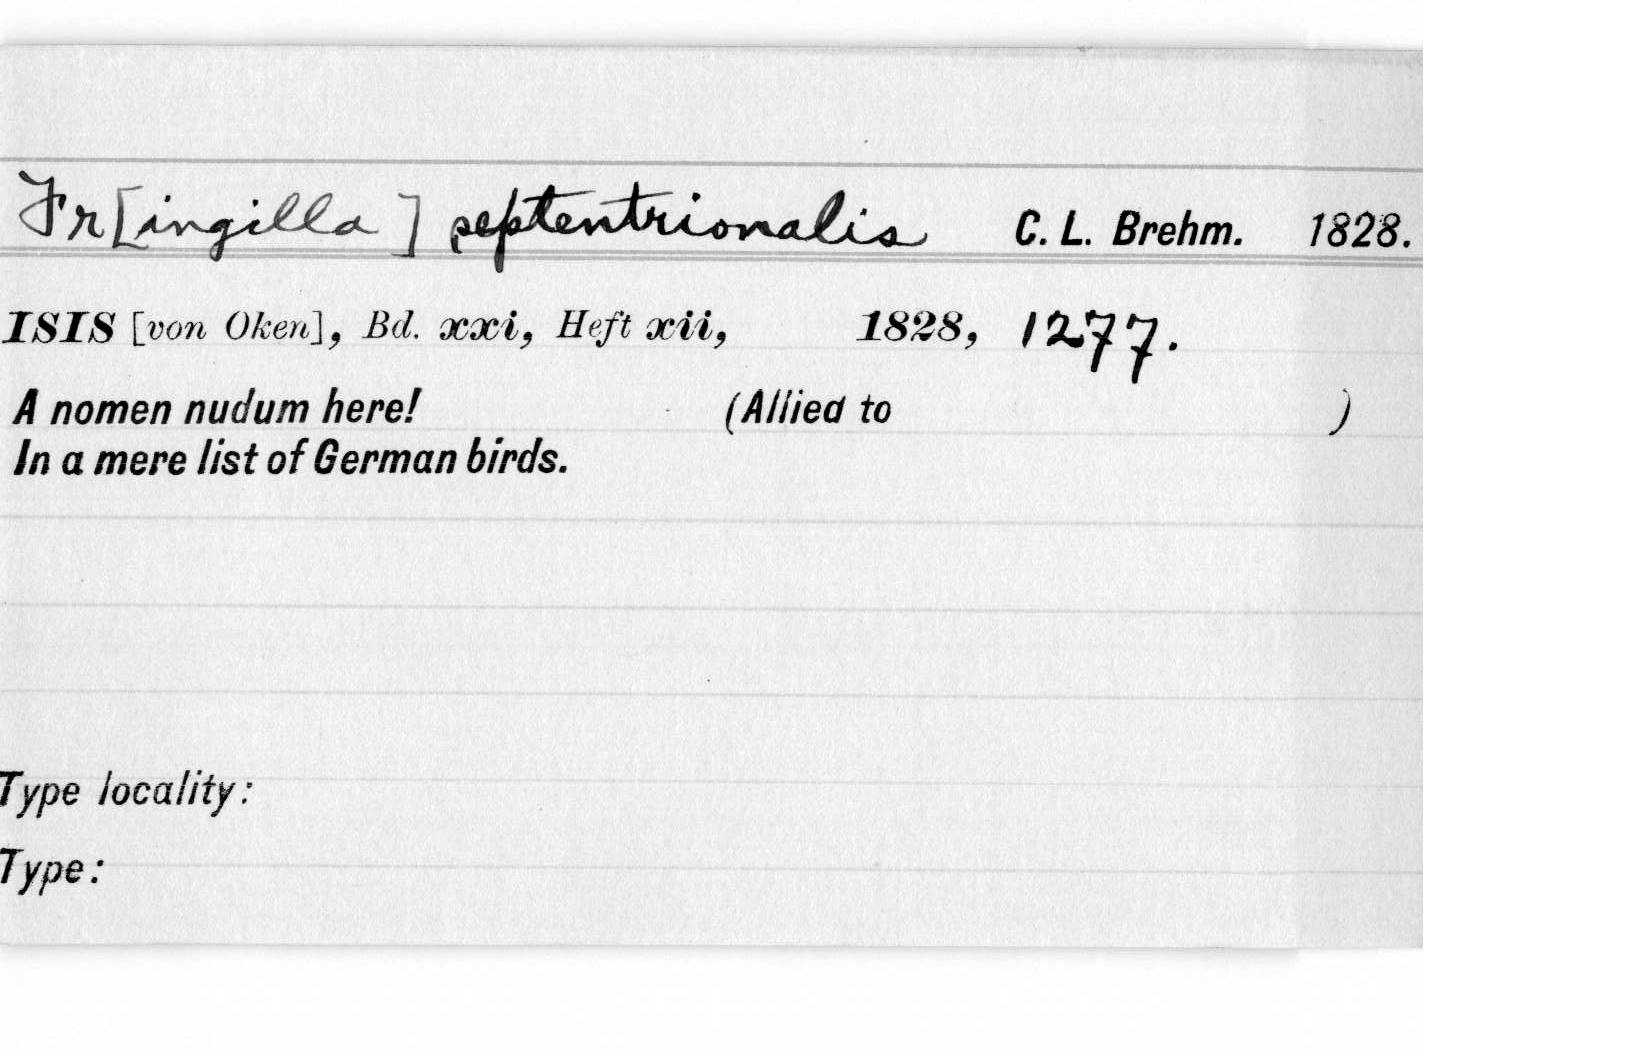 Fr[ingilla] septentrionalis C. L. Brehm. 1828.
ISIS [von Oken], Bd. xxi, Heft xii, 1828, 1277.
A nomen nudum here! (Allied to )
In a mere list of German birds.
Type locality:
Type: